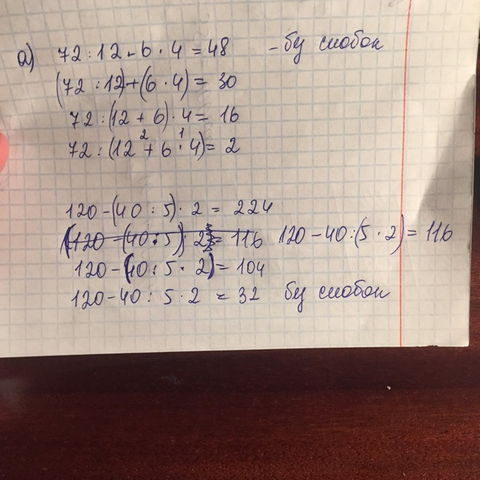 а) 72 : 12 - 6 · 4 = 48 - бу скобок
(72 : 12) + (6 · 4) = 30
72 : (12 + 6) · 4 = 16
72 : (12 + 6 · 4) = 2
2 1
120 - (40 : 5) · 2 = 224
(120 - (40 : 5) · 2) = 116 120 - 40 : (5 · 2) = 116
120 - (40 : 5 · 2) = 104
120 - 40 : 5 · 2 = 32 бу скобок